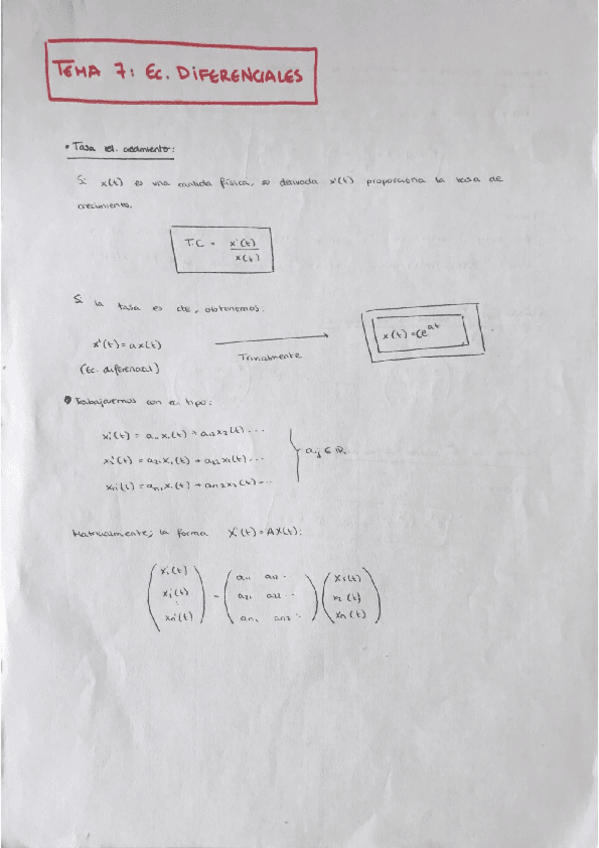 TEMA 7: EC. DIFERENCIALES
• Tasa rel. crecimiento:
Si x(t) es una cantidad física, su derivada x'(t) proporciona la tasa de
crecimiento.
T.C = x'(t) / x(t)
Si la tasa es cte, obtenemos:
x'(t) = ax(t) → Trivialmente x(t) = Ce^at
(Ec. diferencial)
• Trabajaremos con ec. tipo:
x₁'(t) = a₁₁x₁(t) + a₁₂x₂(t) ...
x₂'(t) = a₂₁x₁(t) + a₂₂x₂(t) ... } aij ∈ ℝ.
xn'(t) = an₁x₁(t) + an₂x₂(t) ...
Matricialmente; la forma X'(t) = AX(t):
x₁'(t) a₁₁ a₁₂ ·· x₁(t)
x₂'(t) = a₂₁ a₂₂ ·· x₂(t)
xn'(t) an₁ an₂ ·· xn(t)